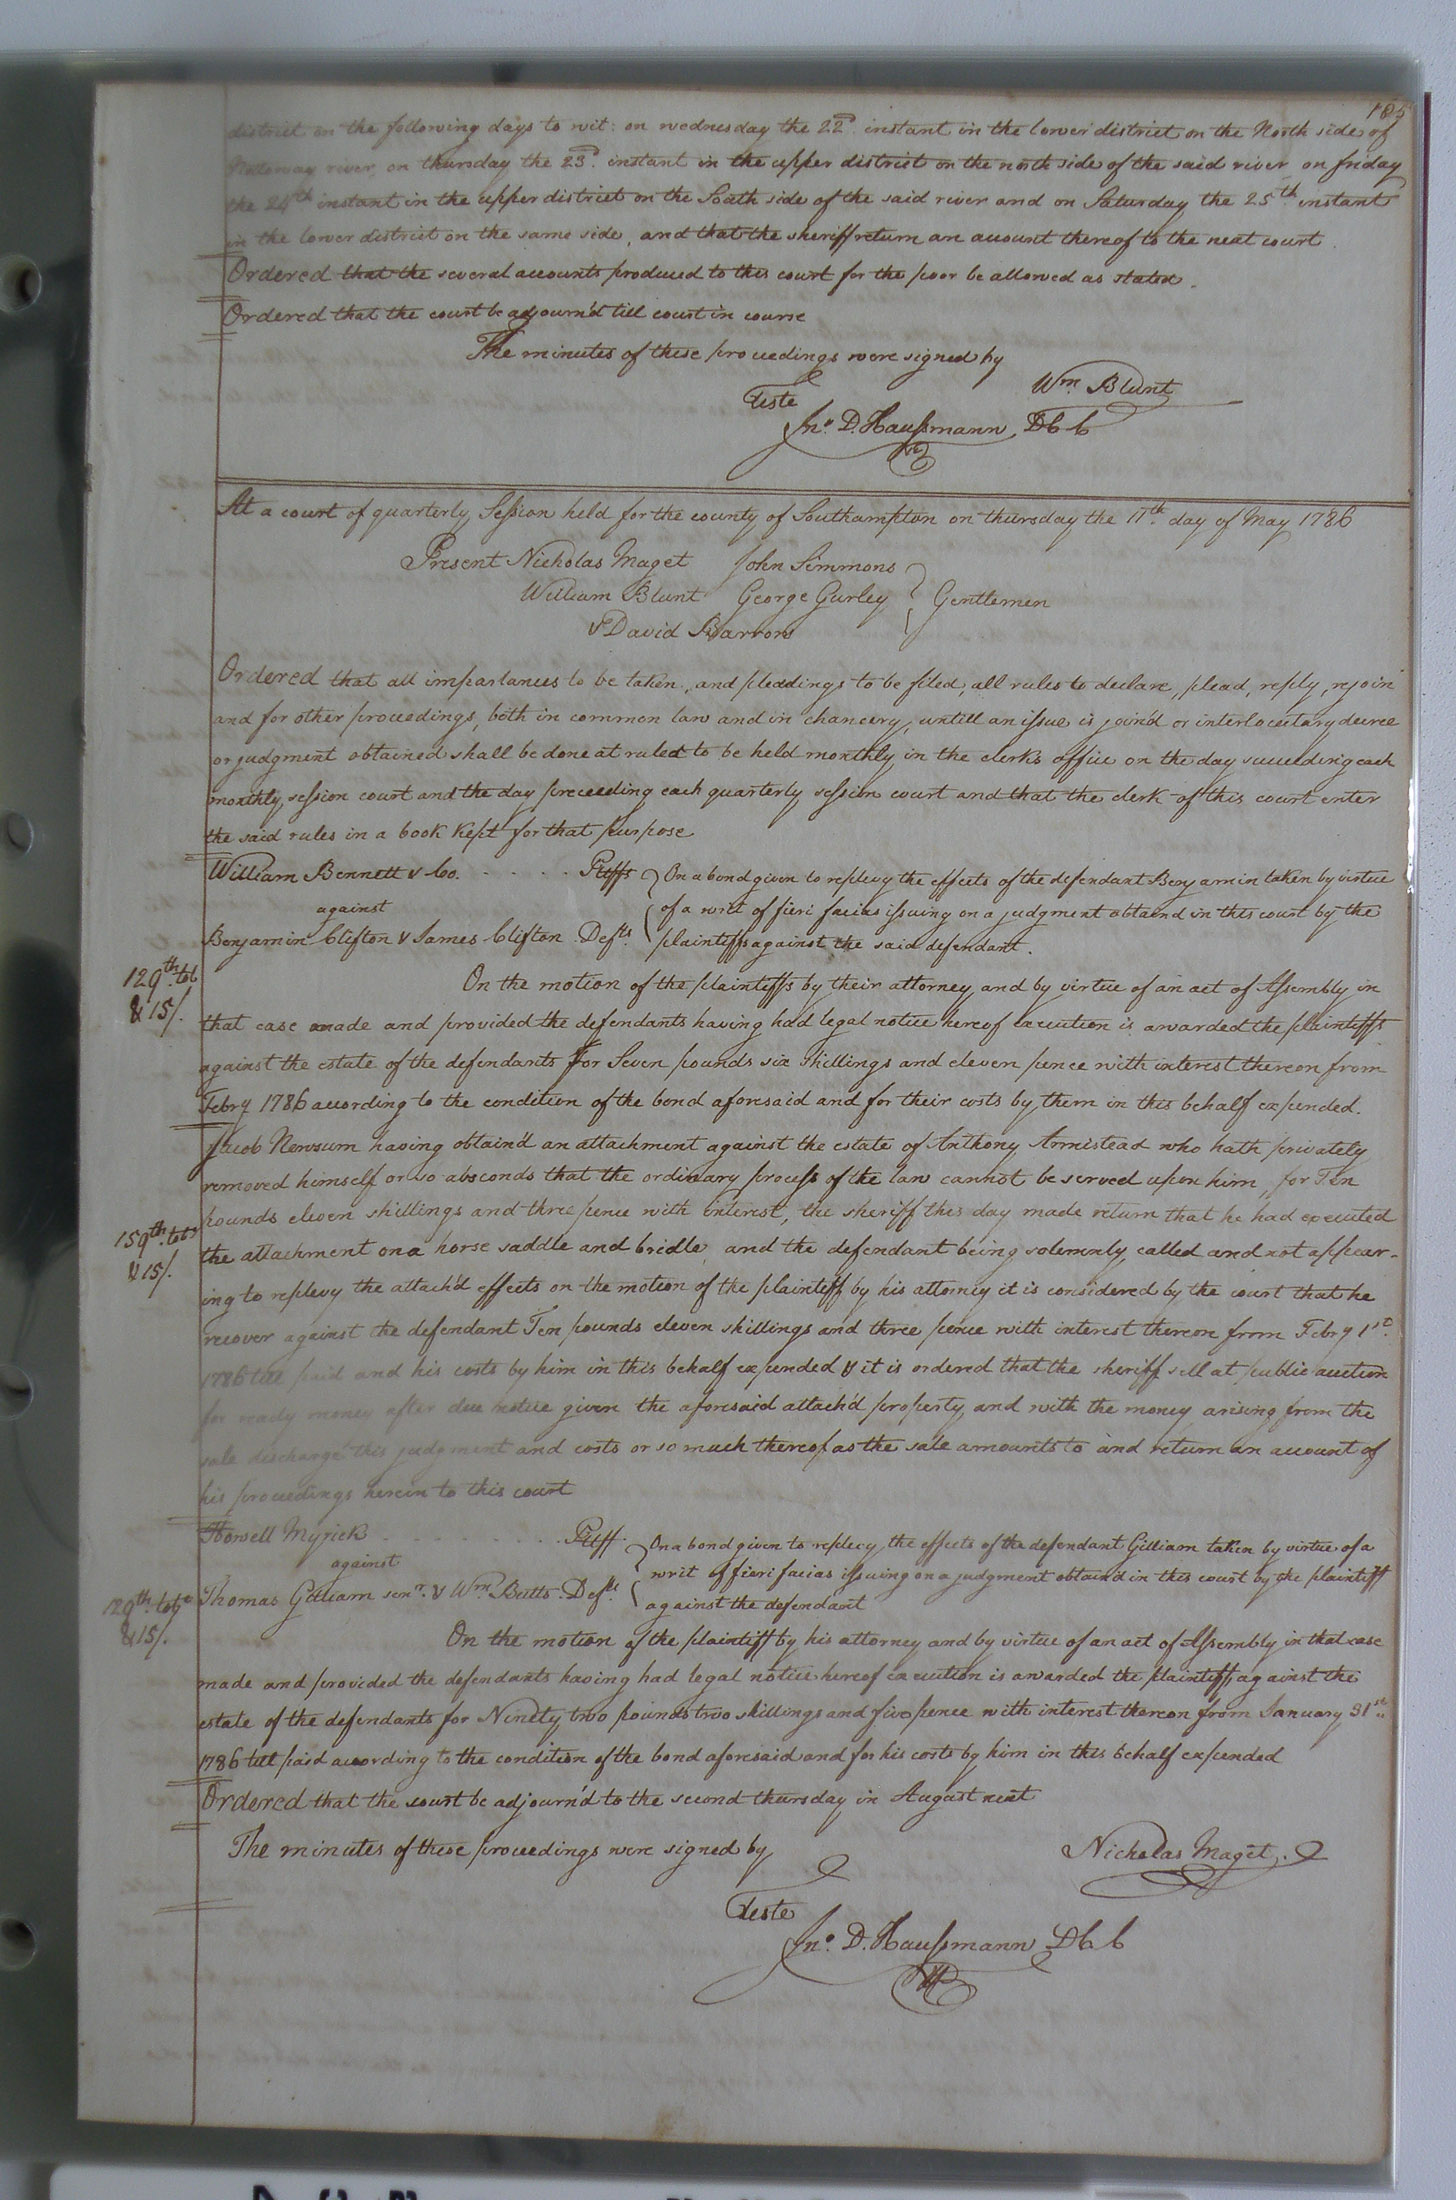 185
district on the following days to wit: on wednesday the 22d. instant in the lower district on the North side of
Nottoway river, on thursday the 23d. instant in the upper district on the north side of the said river on friday
the 24th instant in the upper district on the South side of the said river and on Saturday the 25th instant
in the lower district on the same side, and that the sheriff return an account thereof to the next court.
Ordered that the several accounts produced to this court for the poor be allowed as stated.
Ordered that the court be adjourn'd till court in course
The minutes of these proceedings were signed by
Wm. Blunt
Teste
Jno. D. Haussmann DCC
At a court of quarterly Session held for the county of Southampton on thursday the 11th. day of May 1786
Present Nicholas Maget John Simmons
William Blunt George Gurley } Gentlemen
& David Barrow
Ordered that all imparlances to be taken, and pleadings to be filed, all rules to declare, plead, reply, rejoin
and for other proceedings, both in common law and in chancery, untill an issue is join'd or interlocutary decree
or judgment obtained shall be done at rules to be held monthly in the clerks office on the day succeeding each
monthly session court and the day preceeding each quarterly session court and that the clerk of this court enter
the said rules in a book kept for that purpose
William Bennett & Co. . . . . . Pltffs } On a bond given to replevy the effects of the defendant Benjamin taken by virtue
against of a writ of fieri facias issuing on a judgment obtaind in this court by the
Benjamin Clifton & James Clifton Defts. plaintiffs against the said defendant.
129th. tob
& 15/.
On the motion of the plaintiffs by their attorney and by virtue of an act of Assembly in
that case made and provided the defendants having had legal notice hereof execution is awarded the plaintiffs
against the estate of the defendants for Seven pounds six shillings and eleven pence with interest thereon from
Febry 1786 according to the condition of the bond aforesaid and for their costs by them in this behalf expended.
Jacob Newsum having obtain'd an attachment against the estate of Anthony Armistead who hath privately
removed himself or so absconds that the ordinary process of the law cannot be served upon him for Ten
pounds eleven shillings and three pence with interest, the sheriff this day made return that he had executed
159th. tob
& 15/.
the attachment on a horse saddle and bridle, and the defendant being solemnly called and not appear-
ing to replevy the attach'd effects on the motion of the plaintiff by his attorney it is considered by the court that he
recover against the defendant Ten pounds eleven shillings and three pence with interest thereon from Febry 1st.
1786 till paid and his costs by him in this behalf expended & it is ordered that the sheriff sell at public auction
for ready money after due notice given the aforesaid attach'd property and with the money arising from the
sale discharge this judgment and costs or so much thereof as the sale amounts to and return an account of
his proceedings herein to this court
Howell Myrick . . . . . . . . Pltff. } On a bond given to replevy the effects of the defendant Gilliam taken by virtue of a
against writ of fieri facias issuing on a judgment obtain'd in this court by the plaintiff
Thomas Gilliam senr. & Wm. Butts Defts. against the defendant
129th. tob
& 15/.
On the motion of the plaintiff by his attorney and by virtue of an act of Assembly in that case
made and provided the defendants having had legal notice hereof execution is awarded the plaintiff against the
estate of the defendants for Ninety two pounds two shillings and five pence with interest thereon from January 31st.
1786 till paid according to the condition of the bond aforesaid and for his costs by him in this behalf expended
Ordered that the court be adjourn'd to the second thursday in August next
The minutes of these proceedings were signed by
Nicholas Maget.
Teste
Jno. D. Haussmann DCC